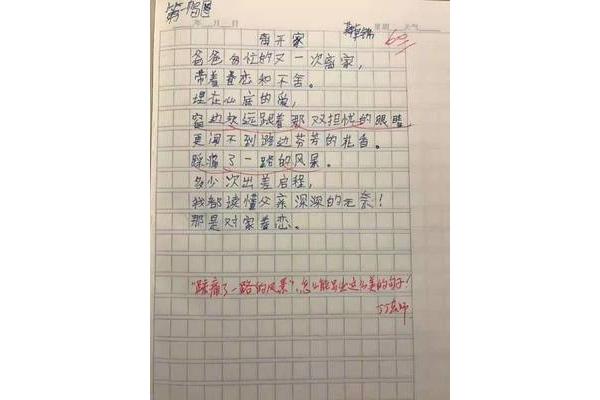 第一周
年 月 日 星期 天气
离开家
爸爸匆忙的又一次离家,
带着眷恋和不舍。
埋在心底的爱,
窗边永远跟着那双担忧的眼睛
更闻不到路边芬芳的花香。
踩痛了一路的风景。
多少次出差启程,
我都读懂父亲深深的无奈!
那是对家眷恋。
"踩痛了一路的风景",怎么能写出这么美的句子!
丁老师